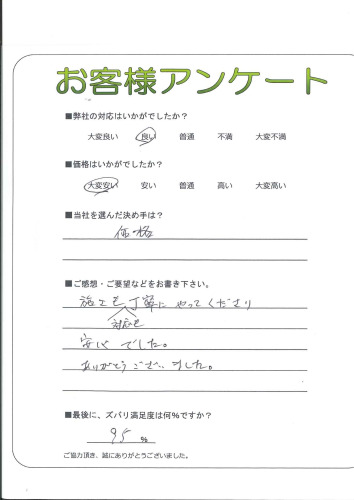 お客様アンケート
■弊社の対応はいかがでしたか？
大変良い 良い 普通 不満 大変不満
■価格はいかがでしたか？
大変安い 安い 普通 高い 大変高い
■当社を選んだ決め手は？
価格
■ご感想・ご要望などをお書き下さい。
施工も丁寧にやってくださり
対応も
安心でした。
ありがとうございました。
■最後に、ズバリ満足度は何%ですか？
95 %
ご協力頂き、誠にありがとうございました。